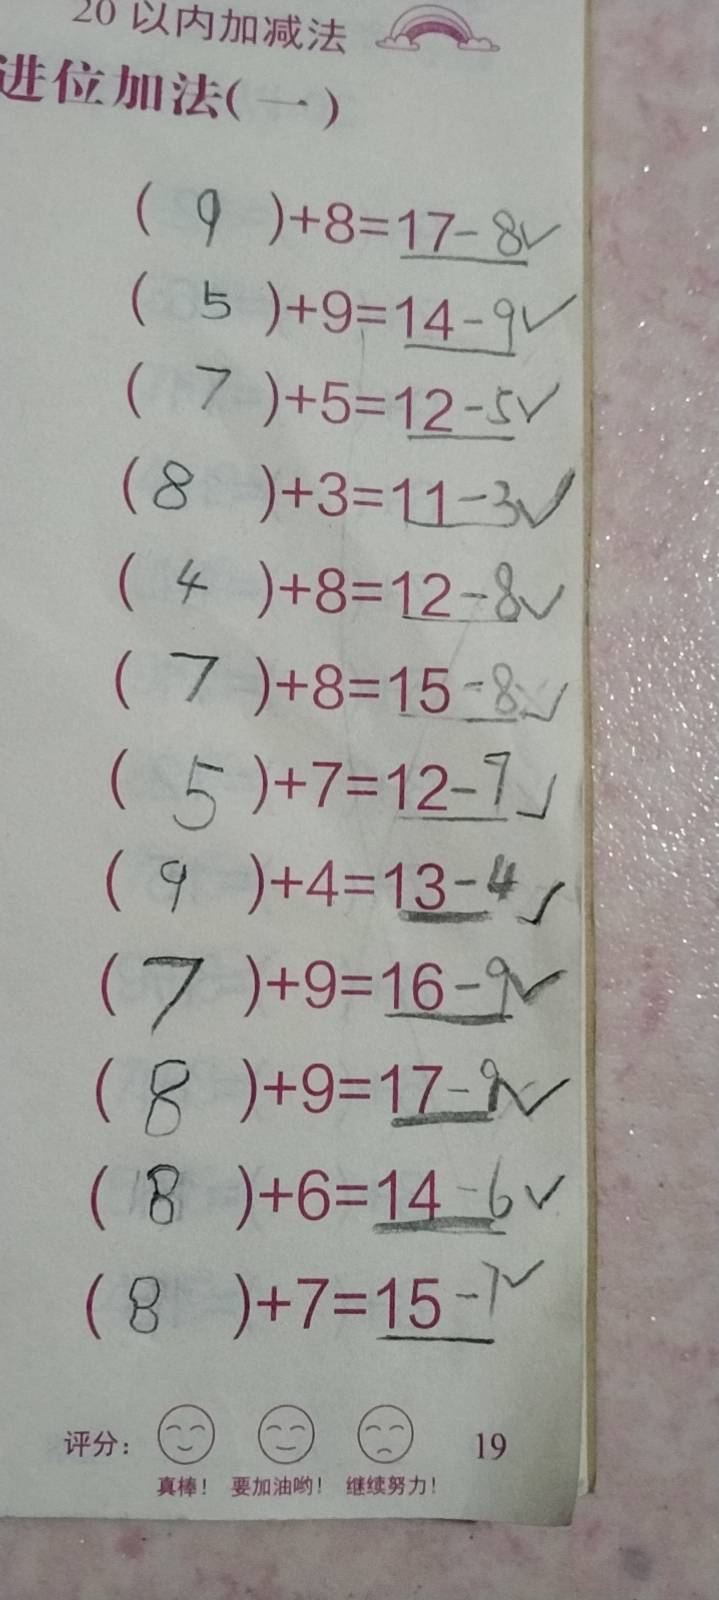 20以内加减法
进位加法(一)
( 9 )+8=17-8✓
( 5 )+9=14-9✓
( 7 )+5=12-5✓
( 8 )+3=11-3✓
( 4 )+8=12-8✓
( 7 )+8=15-8✓
( 5 )+7=12-7✓
( 9 )+4=13-4✓
( 7 )+9=16-9✓
( 8 )+9=17-9✓
( 8 )+6=14-6✓
( 8 )+7=15-7✓
评分： 19
真棒！ 要加油哟！ 继续努力！